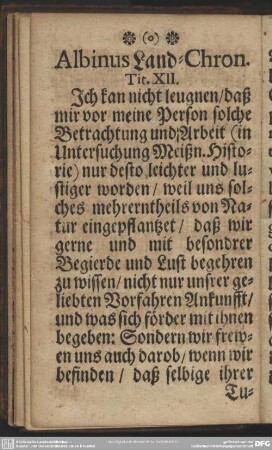 (o)
Albinus Land-Chron.
Tit. XII.
Ich kan nicht leugnen/daß
mir vor meine Person solche
Betrachtung und Arbeit (in
Untersuchung Meißn. Histo-
rie) nur desto leichter und lu-
stiger worden/ weil uns sol-
ches mehrerntheils von Na-
tur eingepflantzet/ daß wir
gerne und mit besondrer
Begierde und Lust begehren
zu wissen/ nicht nur unsrer ge-
liebten Vorfahren Ankunfft/
und was sich förder mit ihnen
begeben: Sondern wir frew-
en uns auch darob/ wenn wir
befinden/ daß selbige ihrer
Tu-
DFG